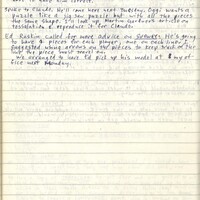 Spoke to Claude. He'll come here next Tuesday. Oggi wants a
puzzle like a jig saw puzzle but with all the pieces
the same shape. I'll look up Martin Gardner's article on
tesselation & reproduce it for Claude.
Ed Raskin called for more advice on He's going
to have 4 pieces for each player, one on each line. I
suggested using arrows on the pieces to keep track of
the piece must travel on.
We arranged to have Ed pick up his model at my of-
fice next Monday.